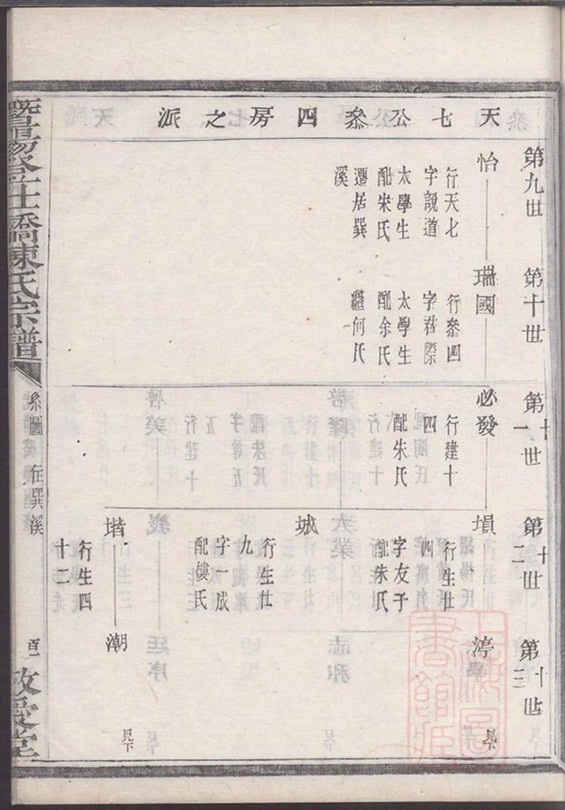 天七公叅四房之派
第九世
怡
行天七
字說道
太學生
配宋氏
遷居巽
溪
第十世
瑞國
行叅四
字君際
太學生
配余氏
繼何氏
第十一世
必發
行建十
四
配朱氏
第十二世
塤
行生廿
四
字友于
配朱氏
城
行生廿
九
字成
配樓氏
堦
行生四
十二
第十三世
渟
見下
潮
見下
陳氏宗譜
系圖
在巽溪
敬愛堂
上海圖書館藏